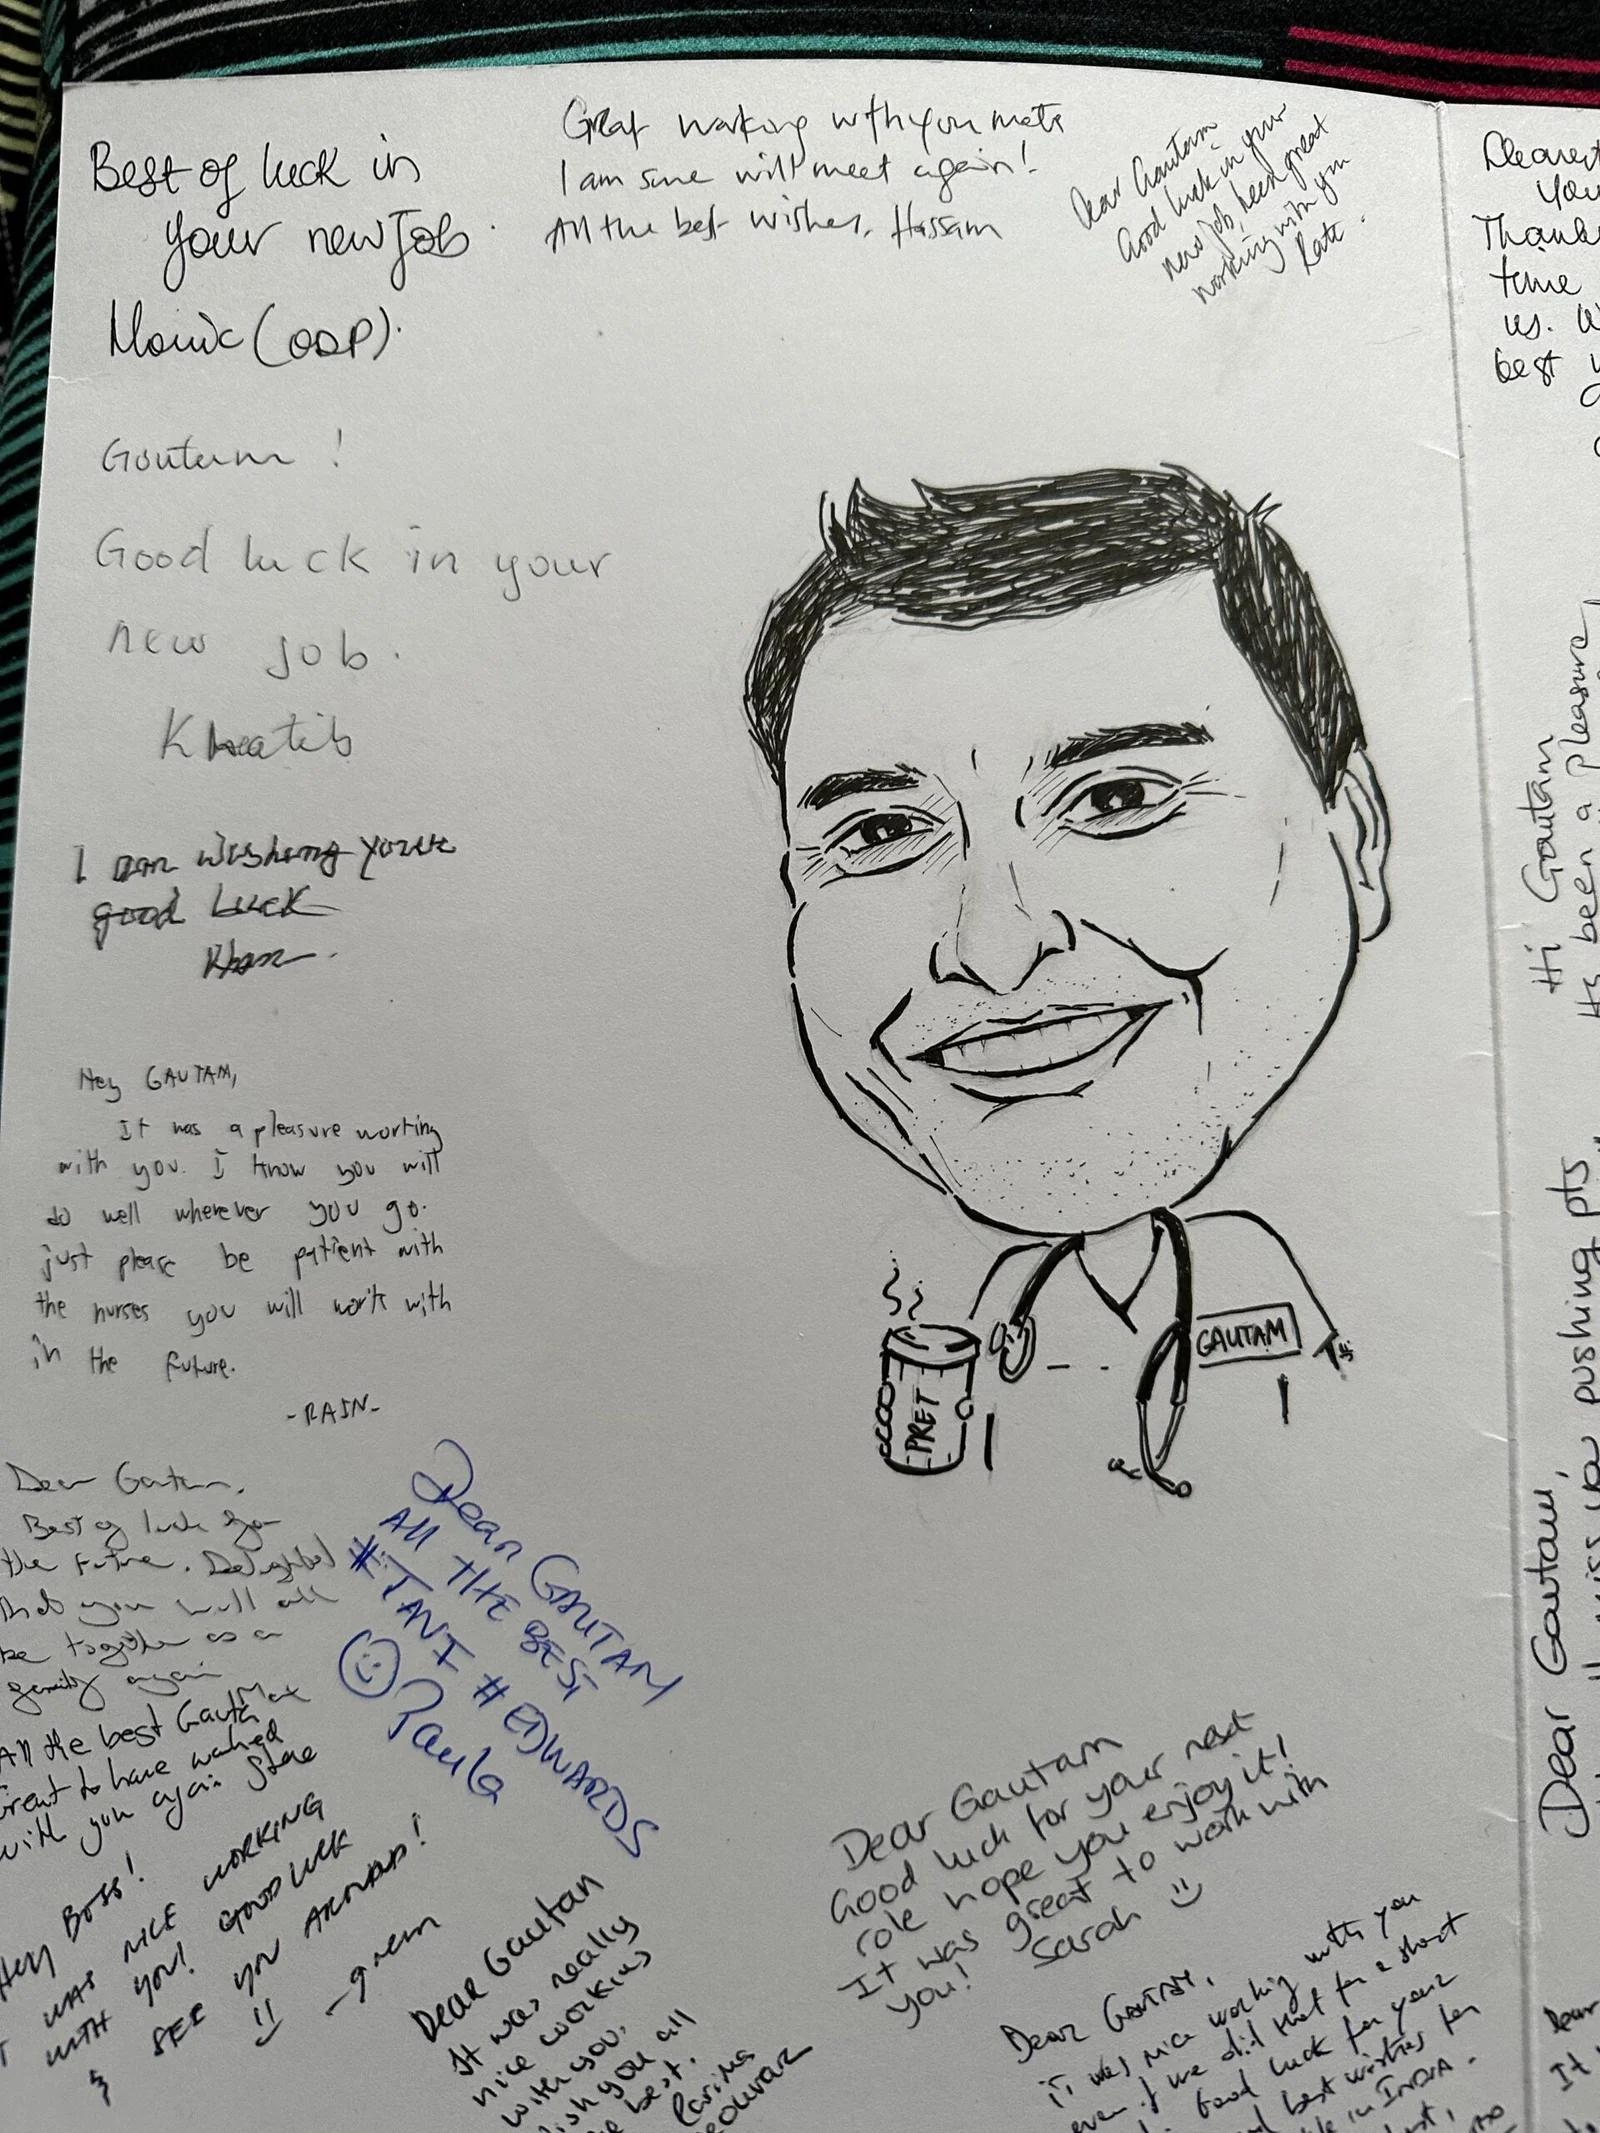 Best of luck in
your new Job.
(ODP).
Great working with you mate
I am sure will meet again!
All the best wishes, Hassam
Dear Gautam
Good luck in your
new job, been great
working with you
Kate.
Goutam!
Good luck in your
new job.
Khatib
I am wishing you
good Luck
Khan.
Hey GAUTAM,
It was a pleasure working
with you. I know you will
do well wherever you go.
just please be patient with
the nurses you will work with
in the future.
-RAIN-
GAUTAM
PRET
Dear Gautam,
Best of luck for
the future. Delighted
that you will all
be together as a
family again
All the best Gautam
Great to have worked
with you again Steve
Hey Boss!
IT WAS NICE WORKING
WITH YOU! GOOD LUCK
& SEE YOU AROUND!
Dear GAUTAM
All THE BEST
#TAVI #EDWARDS
Paula
Dear Gautam
It was really
nice working
with you,
wish you all
the best.
Dear Gautam
Good luck for your next
role hope you enjoy it!
It was great to work with
you! Sarah
Dear GAUTAM,
IT was nice working with you
even if we did that for a short
Good luck for your
best wishes for
in INDIA.
Dearest
You
Thank
time
us. W
best
Hi Gautam
Its been a pleasure
Dear Gautam,
miss you pushing pts
Dear
It